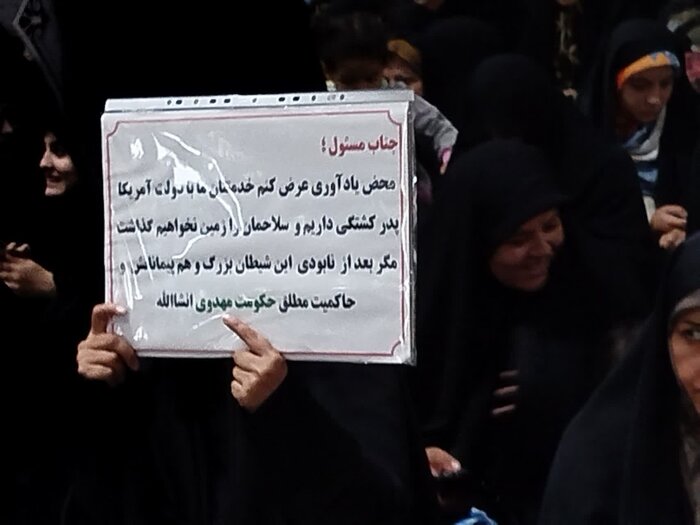 جناب مسئول ؛
محض یادآوری عرض کنم خدمتتان ما با دولت آمریکا
پدر کشتگی داریم و سلاحمان را زمین نخواهیم گذاشت
مگر بعد از نابودی این شیطان بزرگ و هم پیمانانش و
حاکمیت مطلق حکومت مهدوی انشاالله